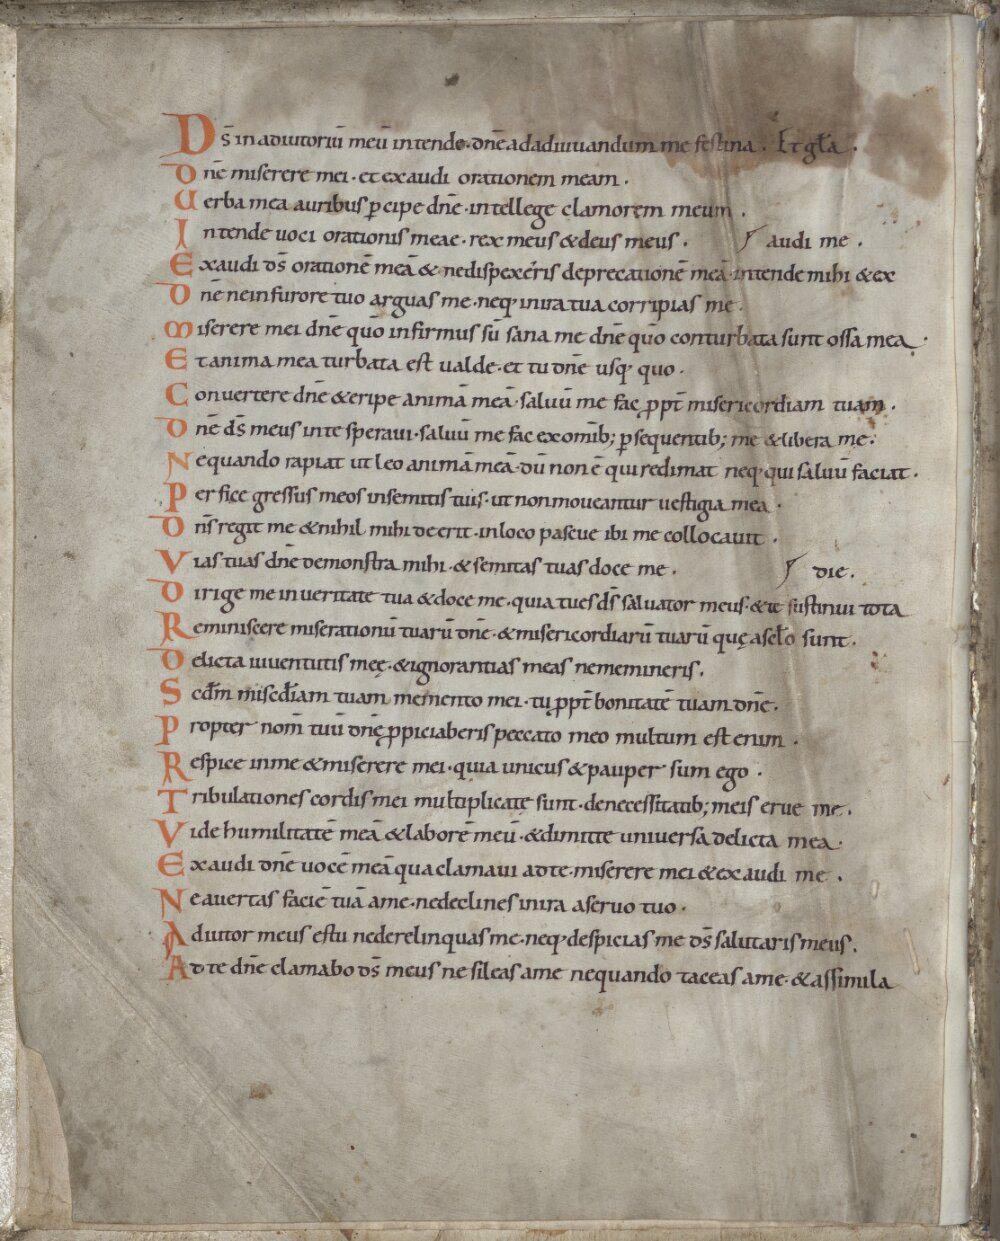 Ds̄ in adiutoriū meū intende· dn̄e ad adiuuandum me festina · Et gl̄a ·
Dn̄e miserere mei · et exaudi orationem meam ·
Uerba mea auribus p̄cipe dn̄e · intellege clamorem meum ·
Intende uoci orationis meae · rex meus & deus meus · audi me ·
Exaudi ds̄ orationē meā & ne dispexeris deprecationē meā · intende mihi & ex
Dn̄e ne in furore tuo arguas me · neq; in ira tua corripias me ·
Miserere mei dn̄e quō infirmus sū sana me dn̄e quō conturbata sunt ossa mea ·
Et anima mea turbata est ualde · et tu dn̄e usq; quo ·
Conuertere dn̄e & eripe animā meā · saluū me fac ꝓpt̄ misericordiam tuam ·
Dn̄e ds̄ meus in te speraui · saluū me fac ex omīb; ꝑsequentib; me & libera me ·
Nequando rapiat ut leo animā meā · dū non ē qui redimat neq; qui saluū faciat ·
Perfice gressus meos in semitis tuis · ut non moueantur uestigia mea ·
Dn̄s regit me & nihil mihi deerit · in loco pascue ibi me collocauit ·
Vias tuas dn̄e demonstra mihi · & semitas tuas doce me · die ·
Dirige me in ueritate tua & doce me · quia tu es ds̄ saluator meus · & te sustinui tota
Reminiscere miserationū tuarū dn̄e · & misericordiarū tuarū quę a sc̄lo sunt ·
Delicta iuuentutis meę · & ignorantias meas ne memineris ·
Scdm̄ miscd̄iam tuam memento mei · tu ꝓpt̄ bonitatē tuam dn̄e ·
Propter nom̄ tuū dn̄e ꝓpiciaberis peccato meo multum est enim ·
Respice in me & miserere mei · quia unicus & pauper sum ego ·
Tribulationes cordis mei multiplicatę sunt · de necessitatib; meis erue me ·
Vide humilitatē meā & laborē meū · & dimitte uniuersa delicta mea ·
Exaudi dn̄e uocē meā qua clamaui ad te · miserere mei & exaudi me ·
Ne auertas faciē tuā a me · ne declines in ira a seruo tuo ·
Adiutor meus esto ne derelinquas me · neq; despicias me ds̄ salutaris meus ·
Ad te dn̄e clamabo ds̄ meus ne sileas a me nequando taceas a me · & assimila